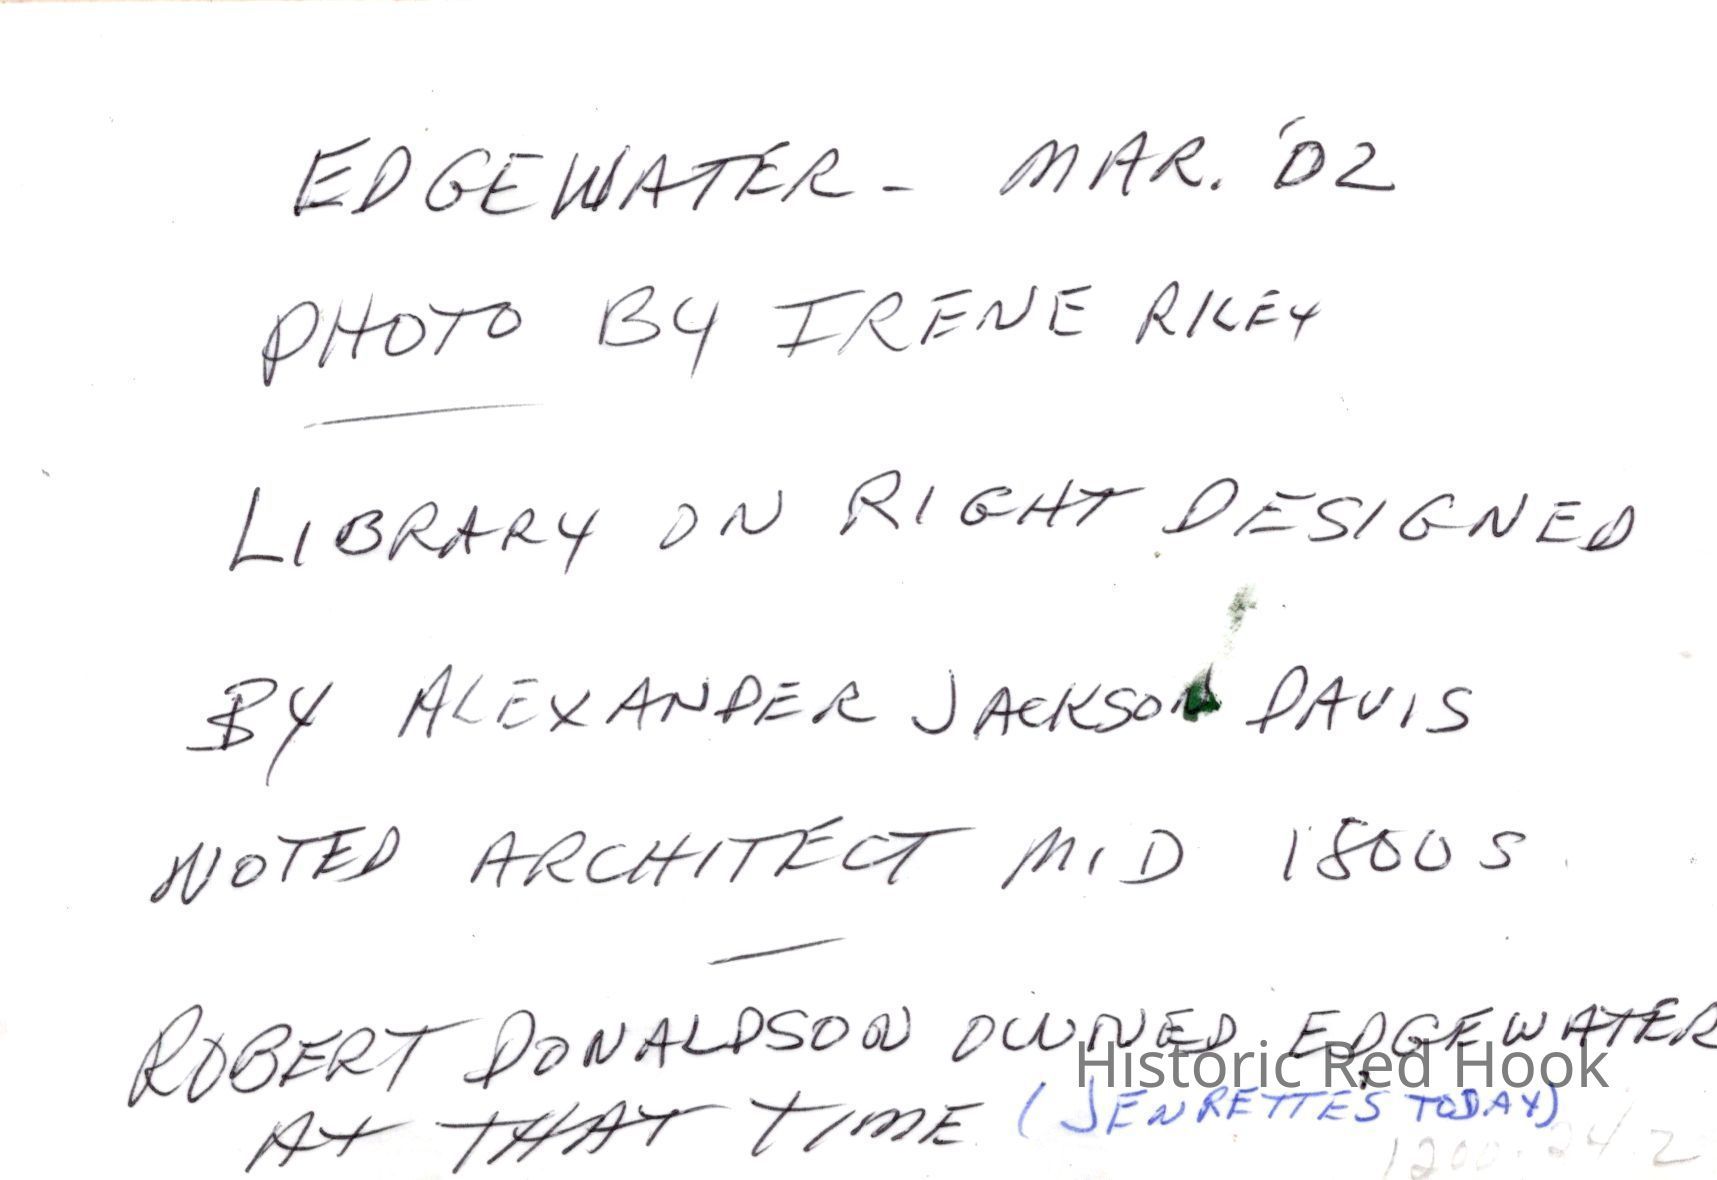 EDGEWATER - MAR. '02
PHOTO BY IRENE RILEY
LIBRARY ON RIGHT DESIGNED
BY ALEXANDER JACKSON DAVIS
NOTED ARCHITECT MID 1800S
ROBERT DONALDSON OWNED EDGEWATER
Historic Red Hook
AT THAT TIME (JENRETTE'S TODAY)
1200.24.2